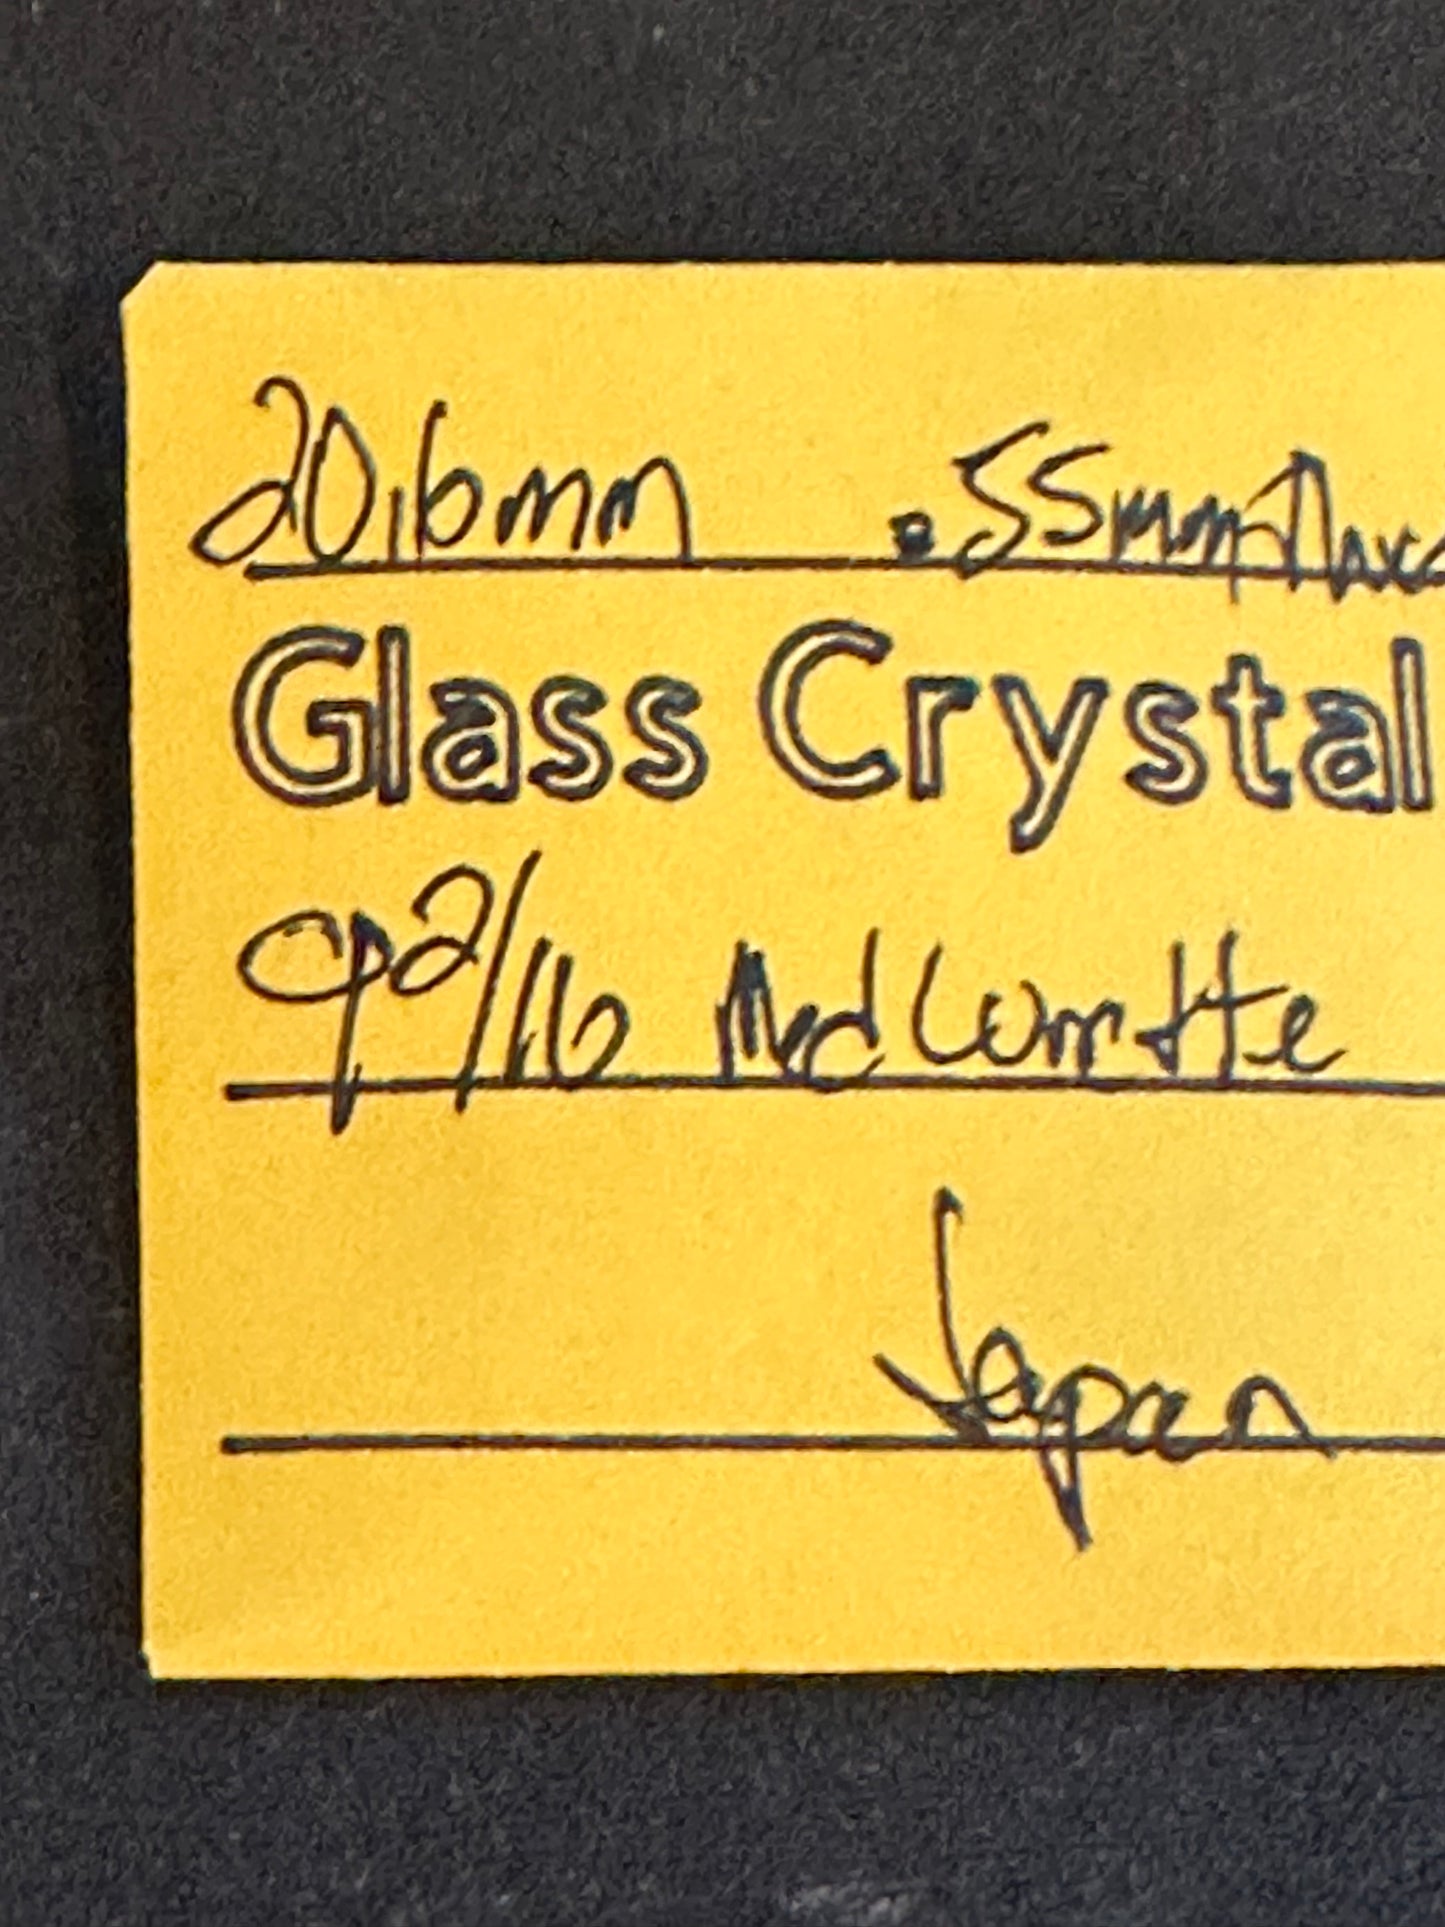 20.6mm .55mm Thick
Glass Crystal
Med White
Japan